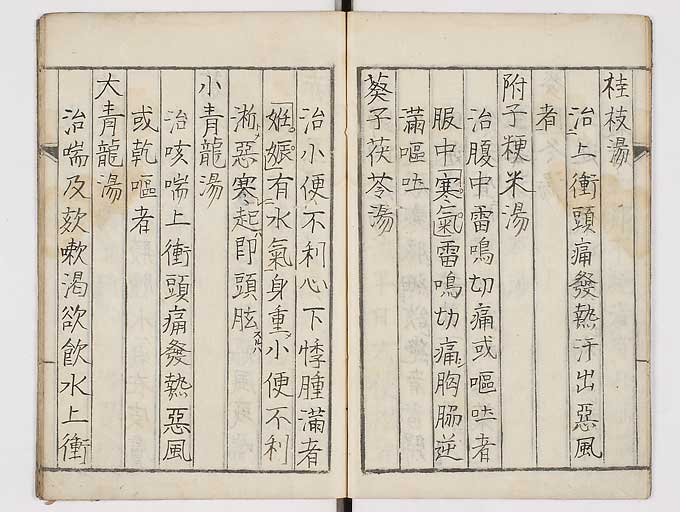 桂枝湯
治上衝頭痛發熱汗出惡風
者
附子粳米湯
治腹中雷鳴切痛或嘔吐者
腹中寒氣雷鳴切痛胸脇逆
滿嘔吐
葵子茯苓湯
治小便不利心下悸腫滿者
姙娠有水氣身重小便不利
淅惡寒起即頭眩
小青龍湯
治咳喘上衝頭痛發熱惡風
或乾嘔者
大青龍湯
治喘及欬嗽渴欲飲水上衝